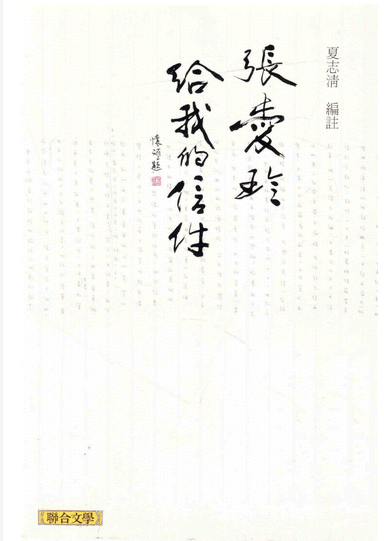 夏志清 編註
張愛玲
給我的信件
聯合文學